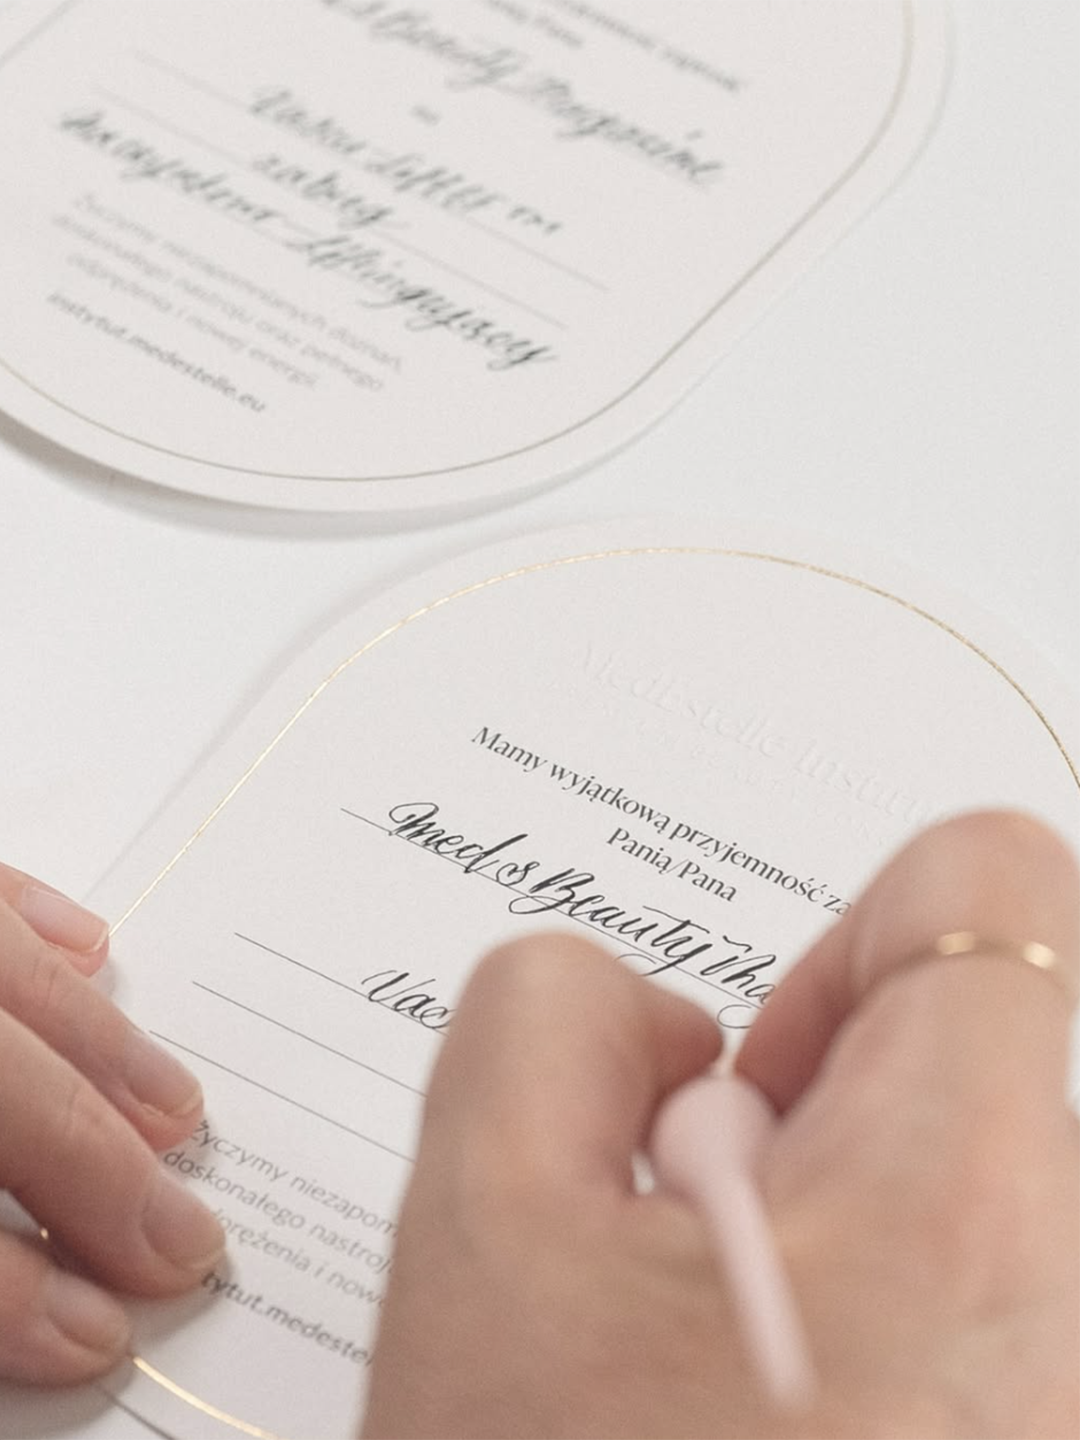 Med & Beauty Magazine
na
Vacu Lifter TM
zabieg
Liftingujący
Życzymy niezapomnianych doznań,
doskonałego nastroju oraz pełnego
odprężenia i nowej energii.
instytut.medestelle.eu
MedEstelle Institu
Mamy wyjątkową przyjemność za
Panią/Pana
Med & Beauty Maga
Vac
Życzymy niezapom
doskonałego nastroj
dprężenia i nowe
tytut.medestel